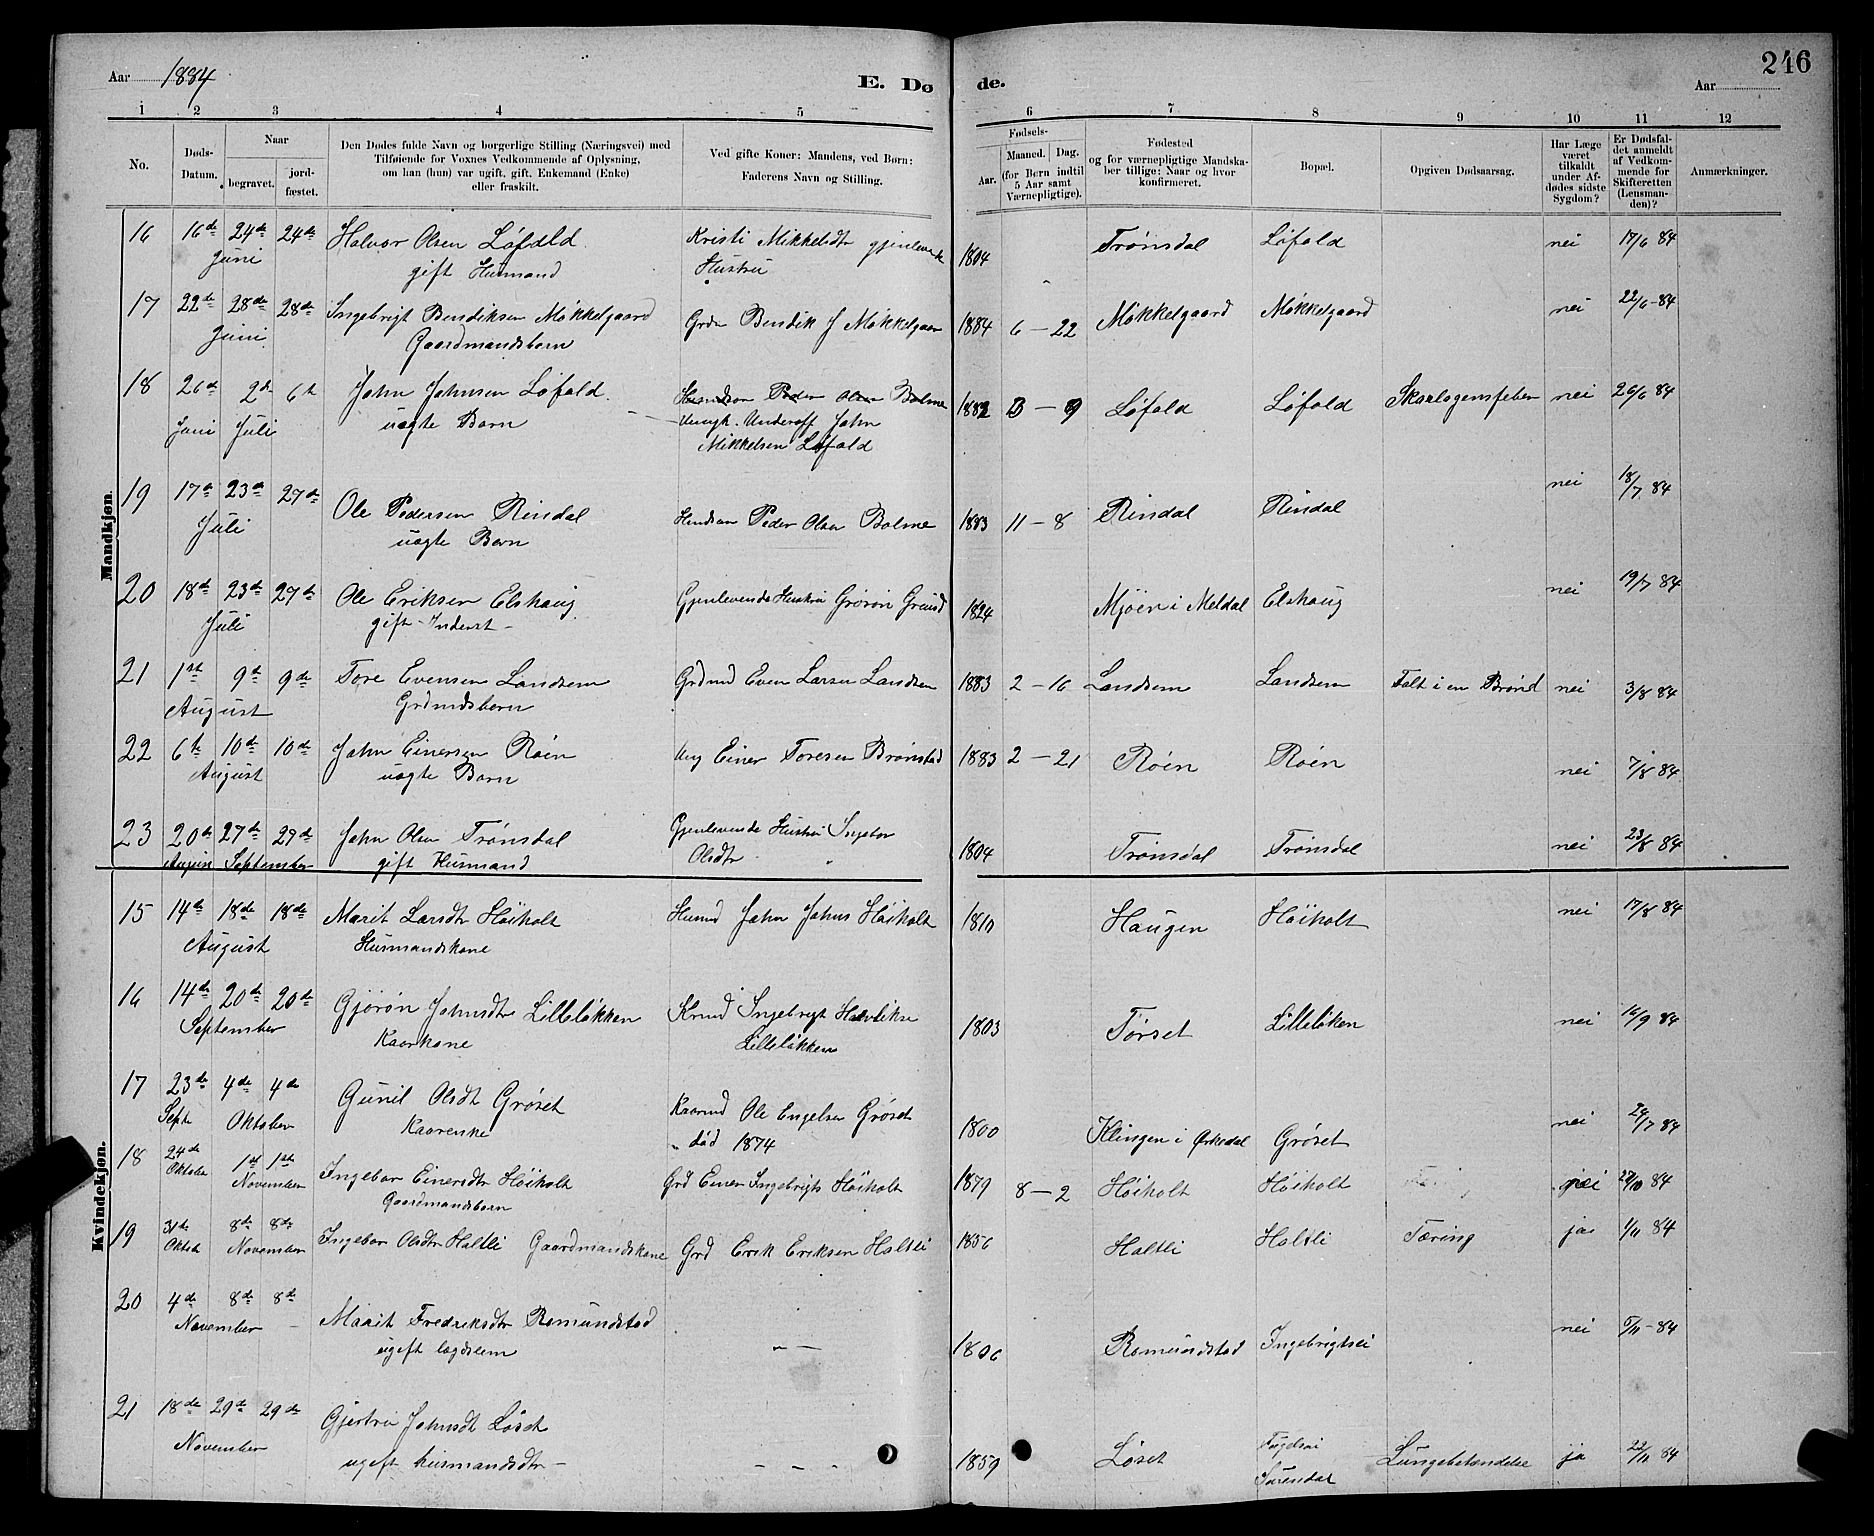 Aar 1884
E. Dø
de.
246
Aar
1 2 3 4 5 6 7 8 9 10 11 12
No.
Døds-
Datum.
Naar
begravet.
jord-
fæstet.
Den Dødes fulde Navn og borgerlige Stilling (Næringsvei) med
Tilføiende for Voxnes Vedkommende af Oplysning,
om han (hun) var ugift, gift, Enkemand (Enke)
eller fraskilt.
Ved gifte Koner: Mandens, ved Børn:
Faderens Navn og Stilling.
Fødsels-
Aar.
Maaned. Dag.
(for Børn indtil
5 Aar samt
Værnepligtige).
Fødested
og for værnepligtige Mandska-
ber tillige: Naar og hvor
konfirmeret.
Bopæl.
Opgiven Dødsaarsag.
Har Læge
været
tilkaldt
under Af-
dødes sidste
Sygdom?
Er Dødsfal-
det anmeldt
af Vedkom-
mende for
Skifteretten
(Lensman-
den)?
Anmærkninger.
Mandkjøn.
16 16de 24de 24de Halvor Olsen Løfald Kristi Mikkelsdtr gjenlevende 1804 Trønsdal Løfald nei 17/6 84
Juni gift Husmand Hustru
17 22de 28de 28de Ingebrigt Bendiksen Møkkelgaard Grdm Bendik J Møkkelgaar 1884 6 - 22 Møkkelgaard Møkkelgaard nei 22/6 - 84
Juni Gaardmandsbarn
18 26de 2de 6te John Johnsen Løfald Husmdson Peder Olsen Bolme 1882 3 - 9 Løfald Løfald Skarlagensfeber nei 26/6 84
Juni Juli uægte Barn Ungk. Underoff John
Mikkelsen Løfald
19 17de 23de 27de Ole Pedersen Rindal Husdson Peder Olsen Bolme 1883 11 - 8 Rindal Rindal nei 18/7 84
Juli uægte Barn
20 18de 23de 27de Ole Eriksen Elshaug Gjenlevende Hustru 1824 Mjøen i Meldal Elshaug nei 19/7 84
Juli gift - Inderst -
21 1st 9de 9de Tore Evensen Landsem Grdmd Even Larsen Landsem 1883 2 - 16 Landsem Landsem Falt i en Brønd nei 3/8 84
August Grdmdsbarn
22 6te 10de 10de John Einersen Røen Ung Einer Toresen Brønstad 1883 2 - 21 Røen Røen nei 7/8 84
August uægte Barn
23 20de 27de 27de John Olsen Trønsdal Gjenlevende Hustru Ingebor 1804 Trønsdal Trønsdal nei 23/8 84
August September gift Husmand Olsdtr
Kvindekjøn.
15 14de 18de 18de Marit Larsdtr Høiholt Husmd John Johns Høiholt 1810 Haugen Høiholt nei 17/8 84
August Husmandskone
16 14de 20de 20de Gjørøn Johnsdtr Lilleløkken Ingebrigt 1803 Tørset Lilleløken nei 16/9 84
September Kaarkone Lilleløkken
17 23de 4de 4de Gunil Olsdt Grøset Kaarmd Ole Engelsen Grøset 1800 Klingen i Ørkedal Grøset nei
Sept Oktober Kaarenke død 1874
18 24de 1st 1st Ingebor Einersdtr Høiholt Grd Einer Ingebrigts Høiholt 1879 8 - 2 Høiholt Høiholt nei 27/10 84
Oktober November Gaardmandsbarn
19 31te 8de 8de Ingebor Olsdtr Haltli Gaardmandskone Grd Erik Eriksen Haltli 1856 Haltli Haltli Tæring ja 1/11 84
Oktob November
20 4de 8de 8de Marit Fredriksdtr Romundstad - - 1806 Romundstad Ingebrigtsei nei 5/11 - 84
November ugift lægdslem
21 18de 29de 29de Gjertru Johnsdt Løset - - - 1859 Løset Lungebetændelse ja 22/11 84
November ugift husmandsdtr - Surendal